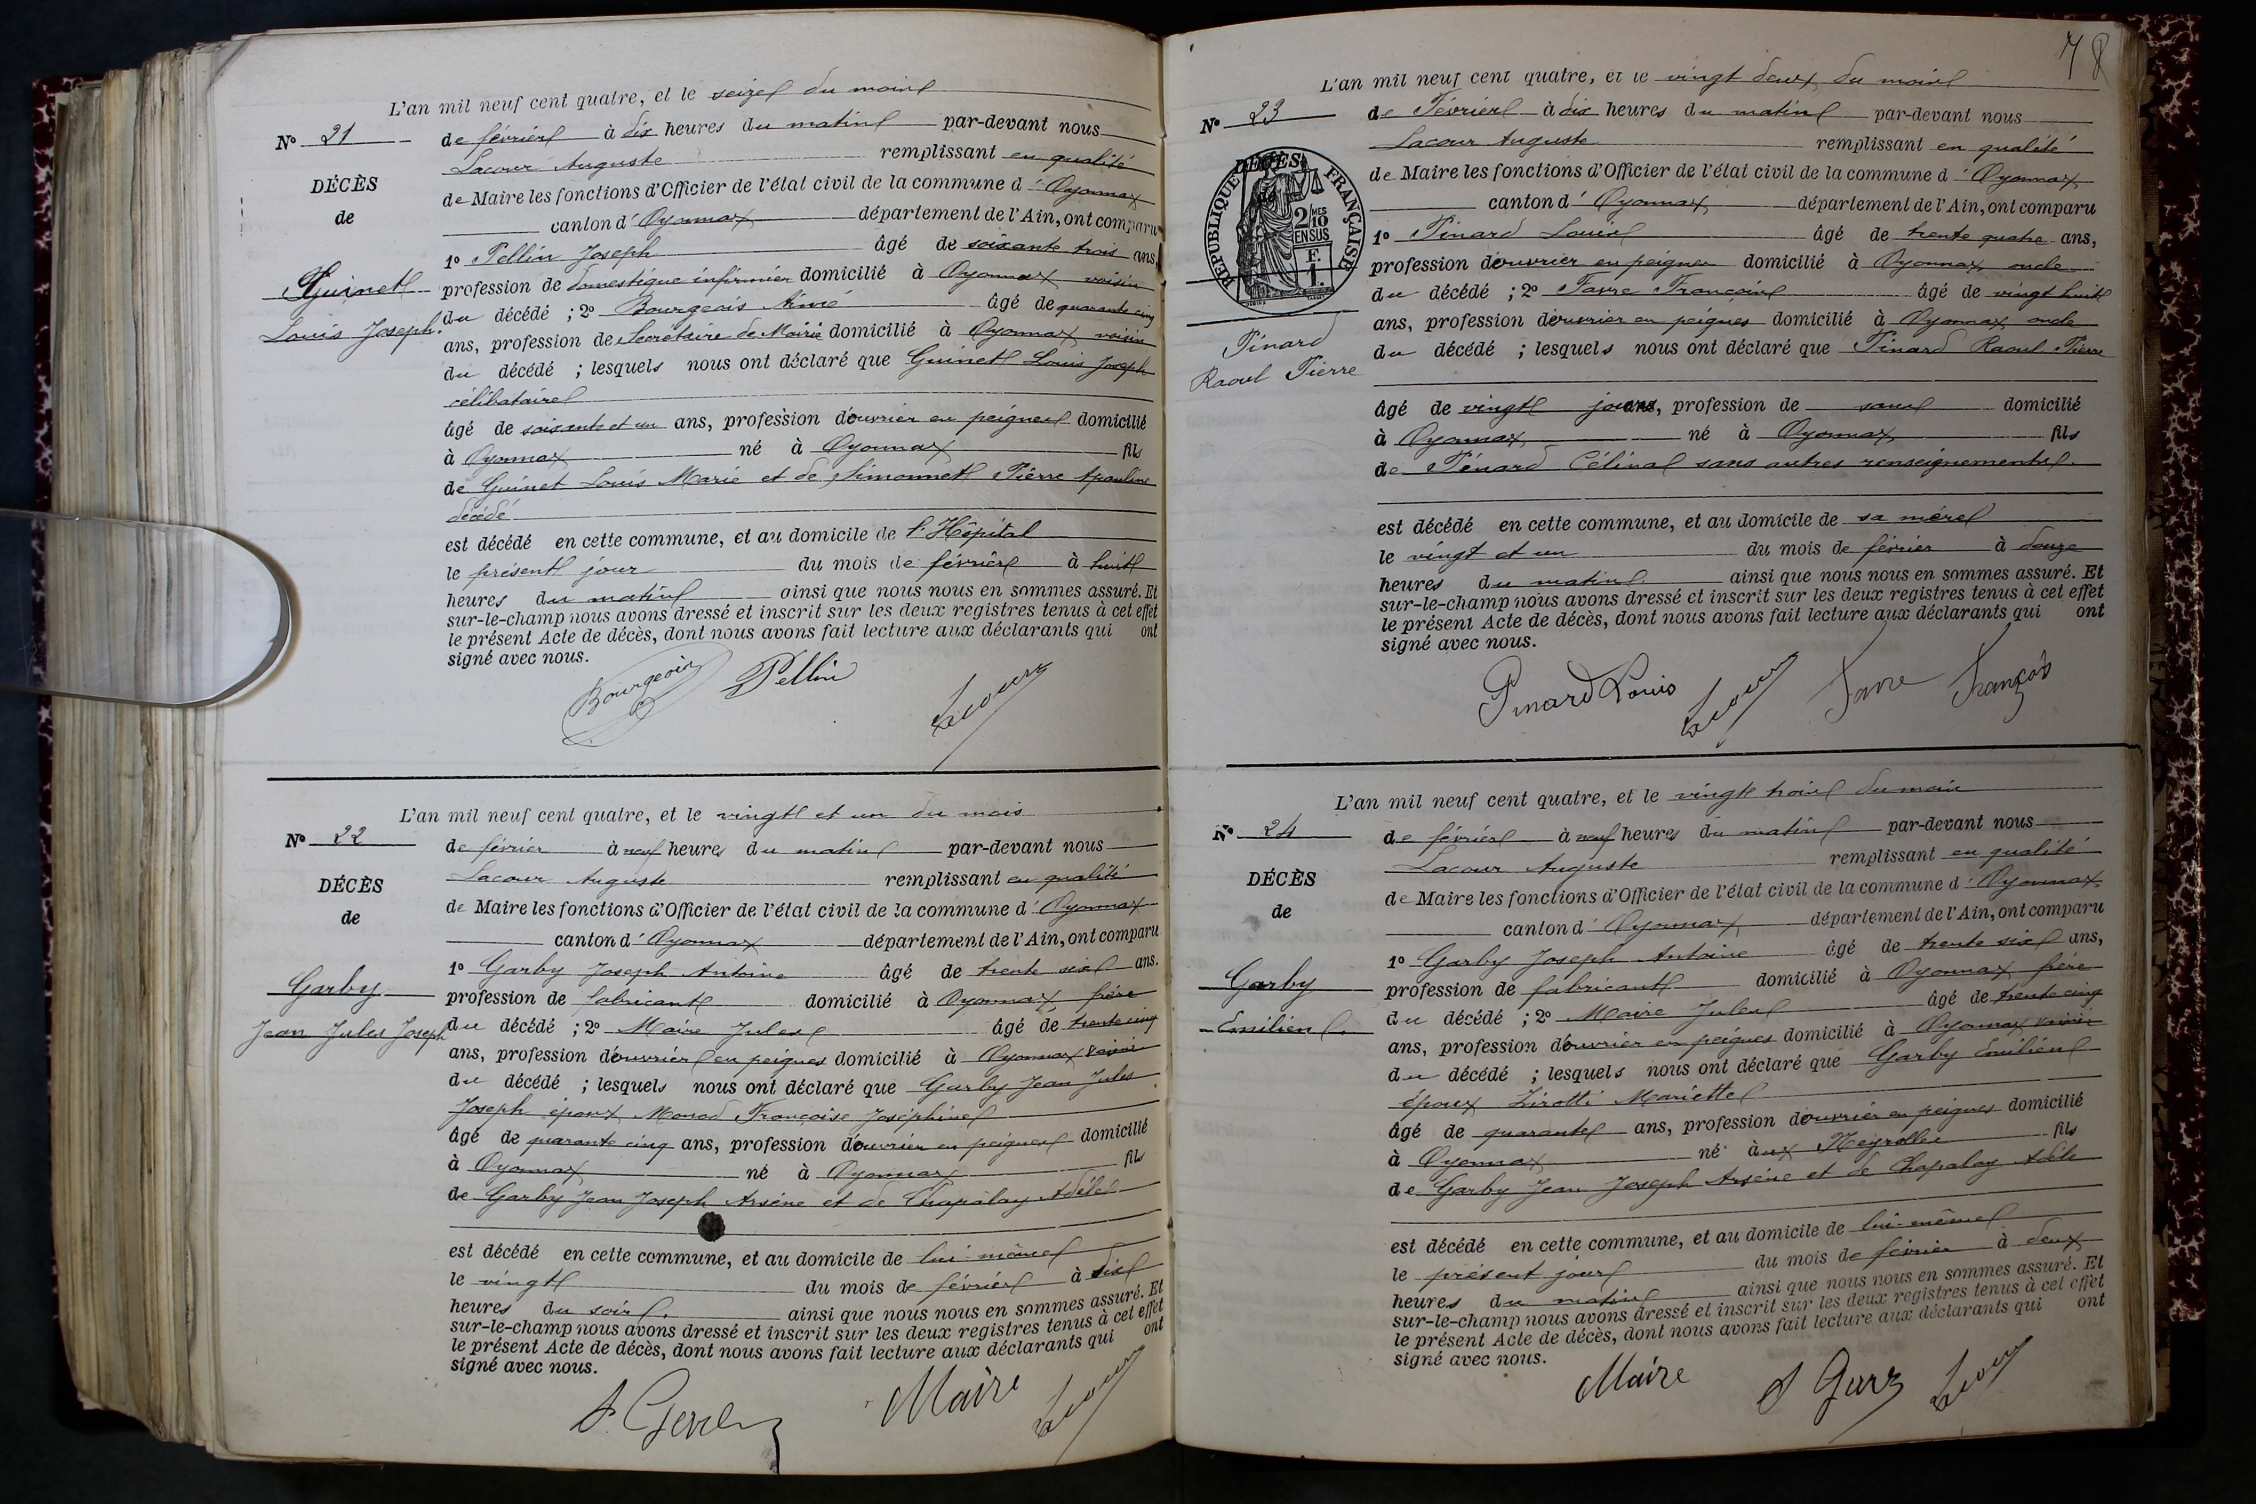 L'an mil neuf cent quatre, et le seize du mois
N° 21
de février à dix heures du matin par-devant nous
Lacour Auguste remplissant en qualité
DÉCÈS
de Maire les fonctions d'Officier de l'état civil de la commune d'Oyonnax
de
canton d'Oyonnax département de l'Ain, ont comparu
1° Pellin Joseph âgé de soixante trois ans,
Guinet
profession de domestique infirmier domicilié à Oyonnax voisin
du décédé ; 2° Bourgeois Aimé âgé de quarante cinq
Louis Joseph.
ans, profession de Secrétaire de Mairie domicilié à Oyonnax voisin
du décédé ; lesquels nous ont déclaré que Guinet Louis Joseph
célibataire
âgé de soixante et un ans, profession d'ouvrier en peignes domicilié
à Oyonnax né à Oyonnax fils
de Guinet Louis Marie et de Simonnet Pierre
décédé
est décédé en cette commune, et au domicile de l'Hôpital
le présent jour du mois de février à huit
heures du matin ainsi que nous nous en sommes assuré. Et
sur-le-champ nous avons dressé et inscrit sur les deux registres tenus à cet effet
le présent Acte de décès, dont nous avons fait lecture aux déclarants qui ont
signé avec nous.
Bourgeois Pellin Lacour
L'an mil neuf cent quatre, et le vingt et un du mois
N° 22
de février à neuf heures du matin par-devant nous
Lacour Auguste remplissant en qualité
DÉCÈS
de Maire les fonctions d'Officier de l'état civil de la commune d'Oyonnax
de
canton d'Oyonnax département de l'Ain, ont comparu
1° Garby Joseph Antoine âgé de trente six ans.
Garby
profession de fabricant domicilié à Oyonnax frère
Jean Jules Joseph
du décédé ; 2° Maire Jules âgé de trente cinq
ans, profession d'ouvrier en peignes domicilié à Oyonnax voisin
du décédé ; lesquels nous ont déclaré que Garby Jean Jules
Joseph époux Monod Françoise Joséphine
âgé de quarante cinq ans, profession d'ouvrier en peignes domicilié
à Oyonnax né à Oyonnax fils
de Garby Jean Joseph Arsène et de Chapalay Adèle
est décédé en cette commune, et au domicile de lui-même
le vingt du mois de février à six
heures du soir. ainsi que nous nous en sommes assuré. Et
sur-le-champ nous avons dressé et inscrit sur les deux registres tenus à cet effet
le présent Acte de décès, dont nous avons fait lecture aux déclarants qui ont
signé avec nous.
Maire Lacour
78
L'an mil neuf cent quatre, et le vingt deux du mois
N° 23
de Février à dix heures du matin par-devant nous
Lacour Auguste remplissant en qualité
DÉCÈS
RÉPUBLIQUE FRANÇAISE
2/10 MES
EN SUS
F.
1.
de Maire les fonctions d'Officier de l'état civil de la commune d'Oyonnax
canton d'Oyonnax département de l'Ain, ont comparu
1° Pinard Louis âgé de trente quatre ans,
profession d'ouvrier en peignes domicilié à Oyonnax oncle
du décédé ; 2° Favre François âgé de vingt huit
ans, profession d'ouvrier en peignes domicilié à Oyonnax oncle
Pinard
Raoul Pierre
du décédé ; lesquels nous ont déclaré que Pinard Raoul Pierre
âgé de vingt jours, profession de sans domicilié
à Oyonnax né à Oyonnax fils
de Pénard Célina sans autres renseignements.
est décédé en cette commune, et au domicile de sa mère
le vingt et un du mois de février à douze
heures du matin ainsi que nous nous en sommes assuré. Et
sur-le-champ nous avons dressé et inscrit sur les deux registres tenus à cet effet
le présent Acte de décès, dont nous avons fait lecture aux déclarants qui ont
signé avec nous.
Pinard Louis Lacour Favre François
L'an mil neuf cent quatre, et le vingt trois du mois
N° 24
de février à neuf heures du matin par-devant nous
Lacour Auguste remplissant en qualité
DÉCÈS
de Maire les fonctions d'Officier de l'état civil de la commune d'Oyonnax
de
canton d'Oyonnax département de l'Ain, ont comparu
1° Garby Joseph Antoine âgé de trente six ans,
Garby
profession de fabricant domicilié à Oyonnax frère
Emilien.
du décédé ; 2° Maire Jules âgé de trente cinq
ans, profession d'ouvrier en peignes domicilié à Oyonnax voisin
du décédé ; lesquels nous ont déclaré que Garby Emilien
époux Zirotti Mariette
âgé de quarante ans, profession d'ouvrier en peignes domicilié
à Oyonnax né aux Neyrolles fils
de Garby Jean Joseph Arsène et de Chapalay Adèle
est décédé en cette commune, et au domicile de lui-même
le présent jour du mois de février à deux
heures du matin ainsi que nous nous en sommes assuré. Et
sur-le-champ nous avons dressé et inscrit sur les deux registres tenus à cet effet
le présent Acte de décès, dont nous avons fait lecture aux déclarants qui ont
signé avec nous.
Maire Lacour